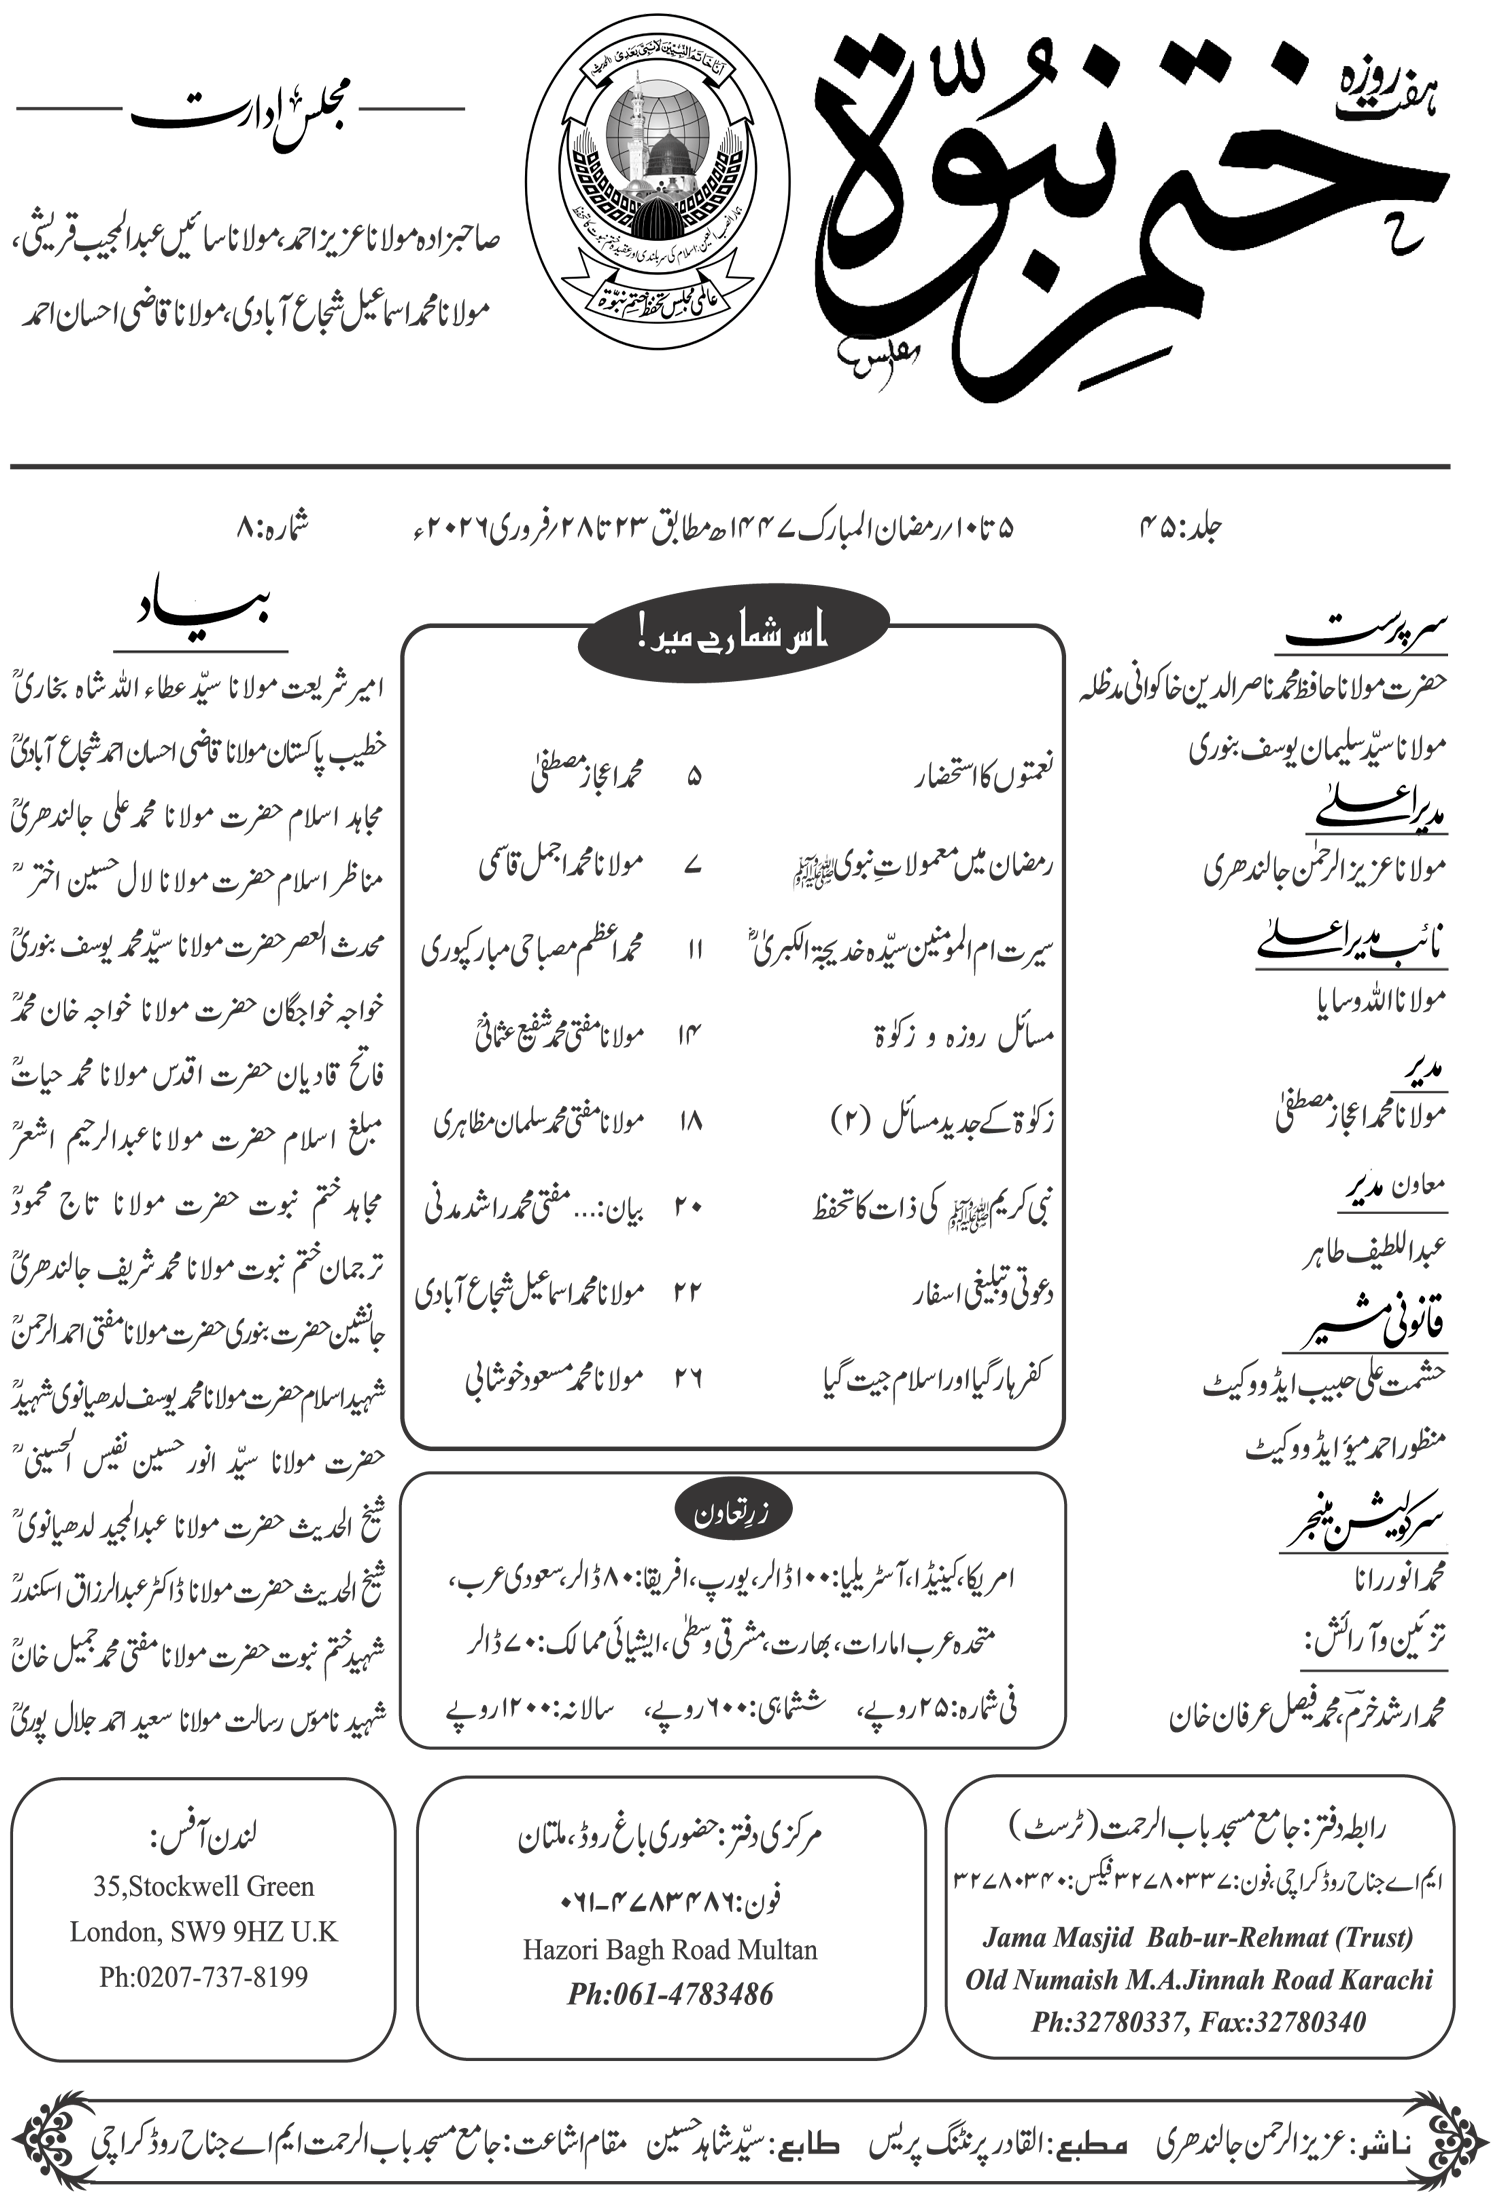 ہفت روزہ
ختم نبوّۃ
اَنَا خَاتَمُ النَّبِیّٖنَ لَا نَبِیَّ بَعْدِیْ
عالمی مجلس تحفظ ختم نبوّۃ
مجلس ادارت
صاحبزادہ مولانا عزیز احمد، مولانا سائیں عبدالمجیب قریشی،
مولانا محمد اسماعیل شجاع آبادی، مولانا قاضی احسان احمد
جلد: ۴۵ ۵ تا ۱۰/رمضان المبارک ۱۴۴۷ھ مطابق ۲۳ تا ۲۸/فروری ۲۰۲۶ء شمارہ: ۸
سرپرست
حضرت مولانا حافظ محمد ناصر الدین خاکوانی مدظلہ
مولانا سیّد سلیمان یوسف بنوری
مدیر اعلیٰ
مولانا عزیز الرحمٰن جالندھری
نائب مدیر اعلیٰ
مولانا اللہ وسایا
مدیر
مولانا محمد اعجاز مصطفیٰ
معاون مدیر
عبداللطیف طاہر
قانونی مشیر
حشمت علی حبیب ایڈووکیٹ
منظور احمد میؤ ایڈووکیٹ
سرکولیشن مینجر
محمد انور رانا
تزئین و آرائش:
محمد ارشد خرم، محمد فیصل عرفان خان
اس شمارے میں!
نعمتوں کا استحضار ۵ محمد اعجاز مصطفیٰ
رمضان میں معمولاتِ نبوی ﷺ ۷ مولانا محمد اجمل قاسمی
سیرت ام المومنین سیّدہ خدیجۃ الکبریٰؓ ۱۱ محمد اعظم مصباحی مبارکپوری
مسائل روزہ و زکوٰۃ ۱۴ مولانا مفتی محمد شفیع عثمانیؒ
زکوٰۃ کے جدید مسائل (۲) ۱۸ مولانا مفتی محمد سلمان مظاہری
نبی کریم ﷺ کی ذات کا تحفظ ۲۰ بیان:... مفتی محمد راشد مدنی
دعوتی و تبلیغی اسفار ۲۲ مولانا محمد اسماعیل شجاع آبادی
کفر ہار گیا اور اسلام جیت گیا ۲۶ مولانا محمد مسعود خوشابی
زرِتعاون
امریکا، کینیڈا، آسٹریلیا: ۱۰۰ ڈالر، یورپ، افریقا: ۸۰ ڈالر، سعودی عرب،
متحدہ عرب امارات، بھارت، مشرقی وسطیٰ، ایشیائی ممالک: ۷۰ ڈالر
فی شمارہ: ۲۵ روپے، ششماہی: ۶۰۰ روپے، سالانہ: ۱۲۰۰ روپے
بیاد
امیر شریعت مولانا سیّد عطاء اللہ شاہ بخاریؒ
خطیب پاکستان مولانا قاضی احسان احمد شجاع آبادیؒ
مجاہد اسلام حضرت مولانا محمد علی جالندھریؒ
مناظر اسلام حضرت مولانا لال حسین اخترؒ
محدث العصر حضرت مولانا سیّد محمد یوسف بنوریؒ
خواجہ خواجگان حضرت مولانا خواجہ خان محمدؒ
فاتح قادیان حضرت اقدس مولانا محمد حیاتؒ
مبلغ اسلام حضرت مولانا عبدالرحیم اشعرؒ
مجاہد ختم نبوت حضرت مولانا تاج محمودؒ
ترجمان ختم نبوت مولانا محمد شریف جالندھریؒ
جانشین حضرت بنوری حضرت مولانا مفتی احمد الرحمنؒ
شہید اسلام حضرت مولانا محمد یوسف لدھیانوی شہیدؒ
حضرت مولانا سیّد انور حسین نفیس الحسینیؒ
شیخ الحدیث حضرت مولانا عبدالمجید لدھیانویؒ
شیخ الحدیث حضرت مولانا ڈاکٹر عبدالرزاق اسکندرؒ
شہید ختم نبوت حضرت مولانا مفتی محمد جمیل خانؒ
شہید ناموس رسالت مولانا سعید احمد جلال پوریؒ
رابطہ دفتر: جامع مسجد باب الرحمت (ٹرسٹ)
ایم اے جناح روڈ کراچی، فون: ۳۲۷۸۰۳۳۷ فیکس: ۳۲۷۸۰۳۴۰
Jama Masjid Bab-ur-Rehmat (Trust)
Old Numaish M.A.Jinnah Road Karachi
Ph:32780337, Fax:32780340
مرکزی دفتر: حضوری باغ روڈ، ملتان
فون: ۰۶۱-۴۷۸۳۴۸۶
Hazori Bagh Road Multan
Ph:061-4783486
لندن آفس:
35,Stockwell Green
London, SW9 9HZ U.K
Ph:0207-737-8199
ناشر: عزیز الرحمن جالندھری مطبع: القادر پرنٹنگ پریس طابع: سیّد شاہد حسین مقام اشاعت: جامع مسجد باب الرحمت ایم اے جناح روڈ کراچی